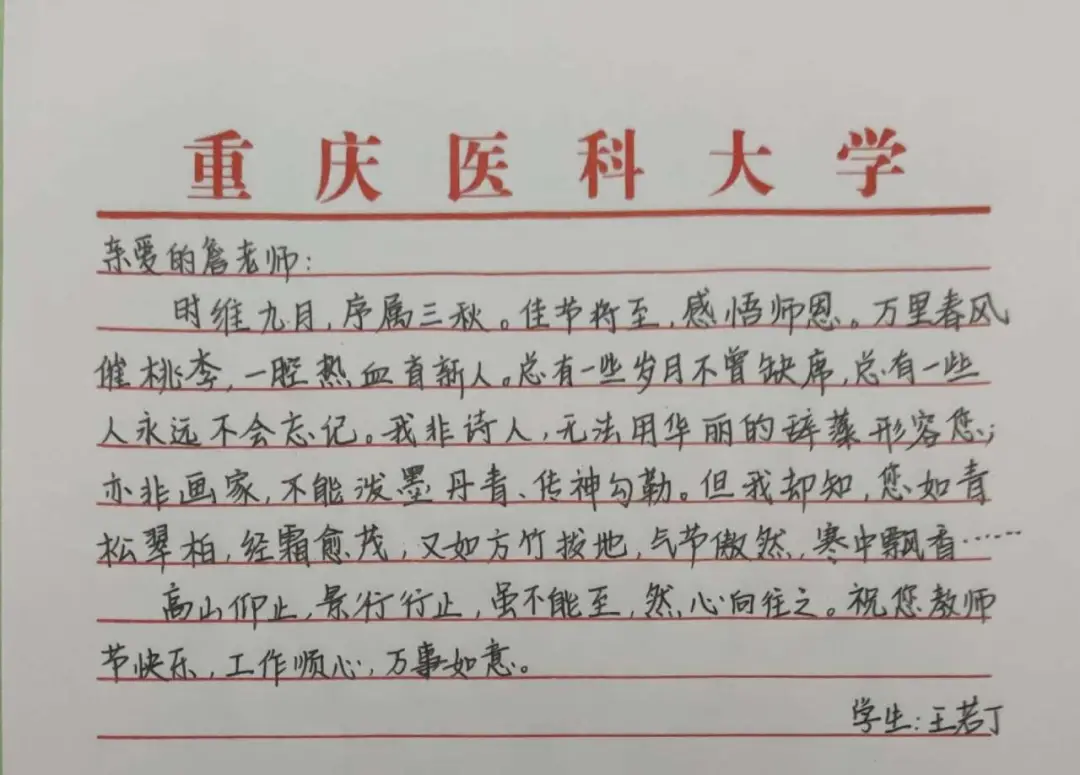 重庆医科大学
亲爱的詹老师：
时维九月，序属三秋。佳节将至，感悟师恩。万里春风
催桃李，一腔热血育新人。总有一些岁月不曾缺席，总有一些
人永远不会忘记。我非诗人，无法用华丽的辞藻形容您；
亦非画家，不能泼墨丹青、传神勾勒。但我却知，您如青
松翠柏，经霜愈茂，又如方竹拔地，气节傲然，寒中飘香……
高山仰止，景行行止，虽不能至，然心向往之。祝您教师
节快乐，工作顺心，万事如意。
学生：王若丁